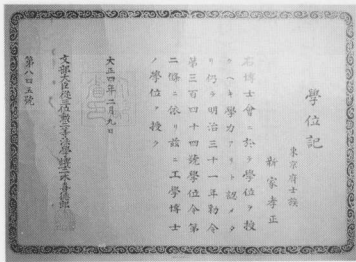 學位記
東京府士族
新家孝正
右博士會ニ於テ學位ヲ授
クヘキ學力アリト認メタ
リ仍テ明治三十一年勅令
第三百四十四號學位令第
二條ニ依リ茲ニ工學博士
ノ學位ヲ授ク
大正四年二月九日
文部大臣從三位勳一等法學博士一木喜德郎
第八四五號